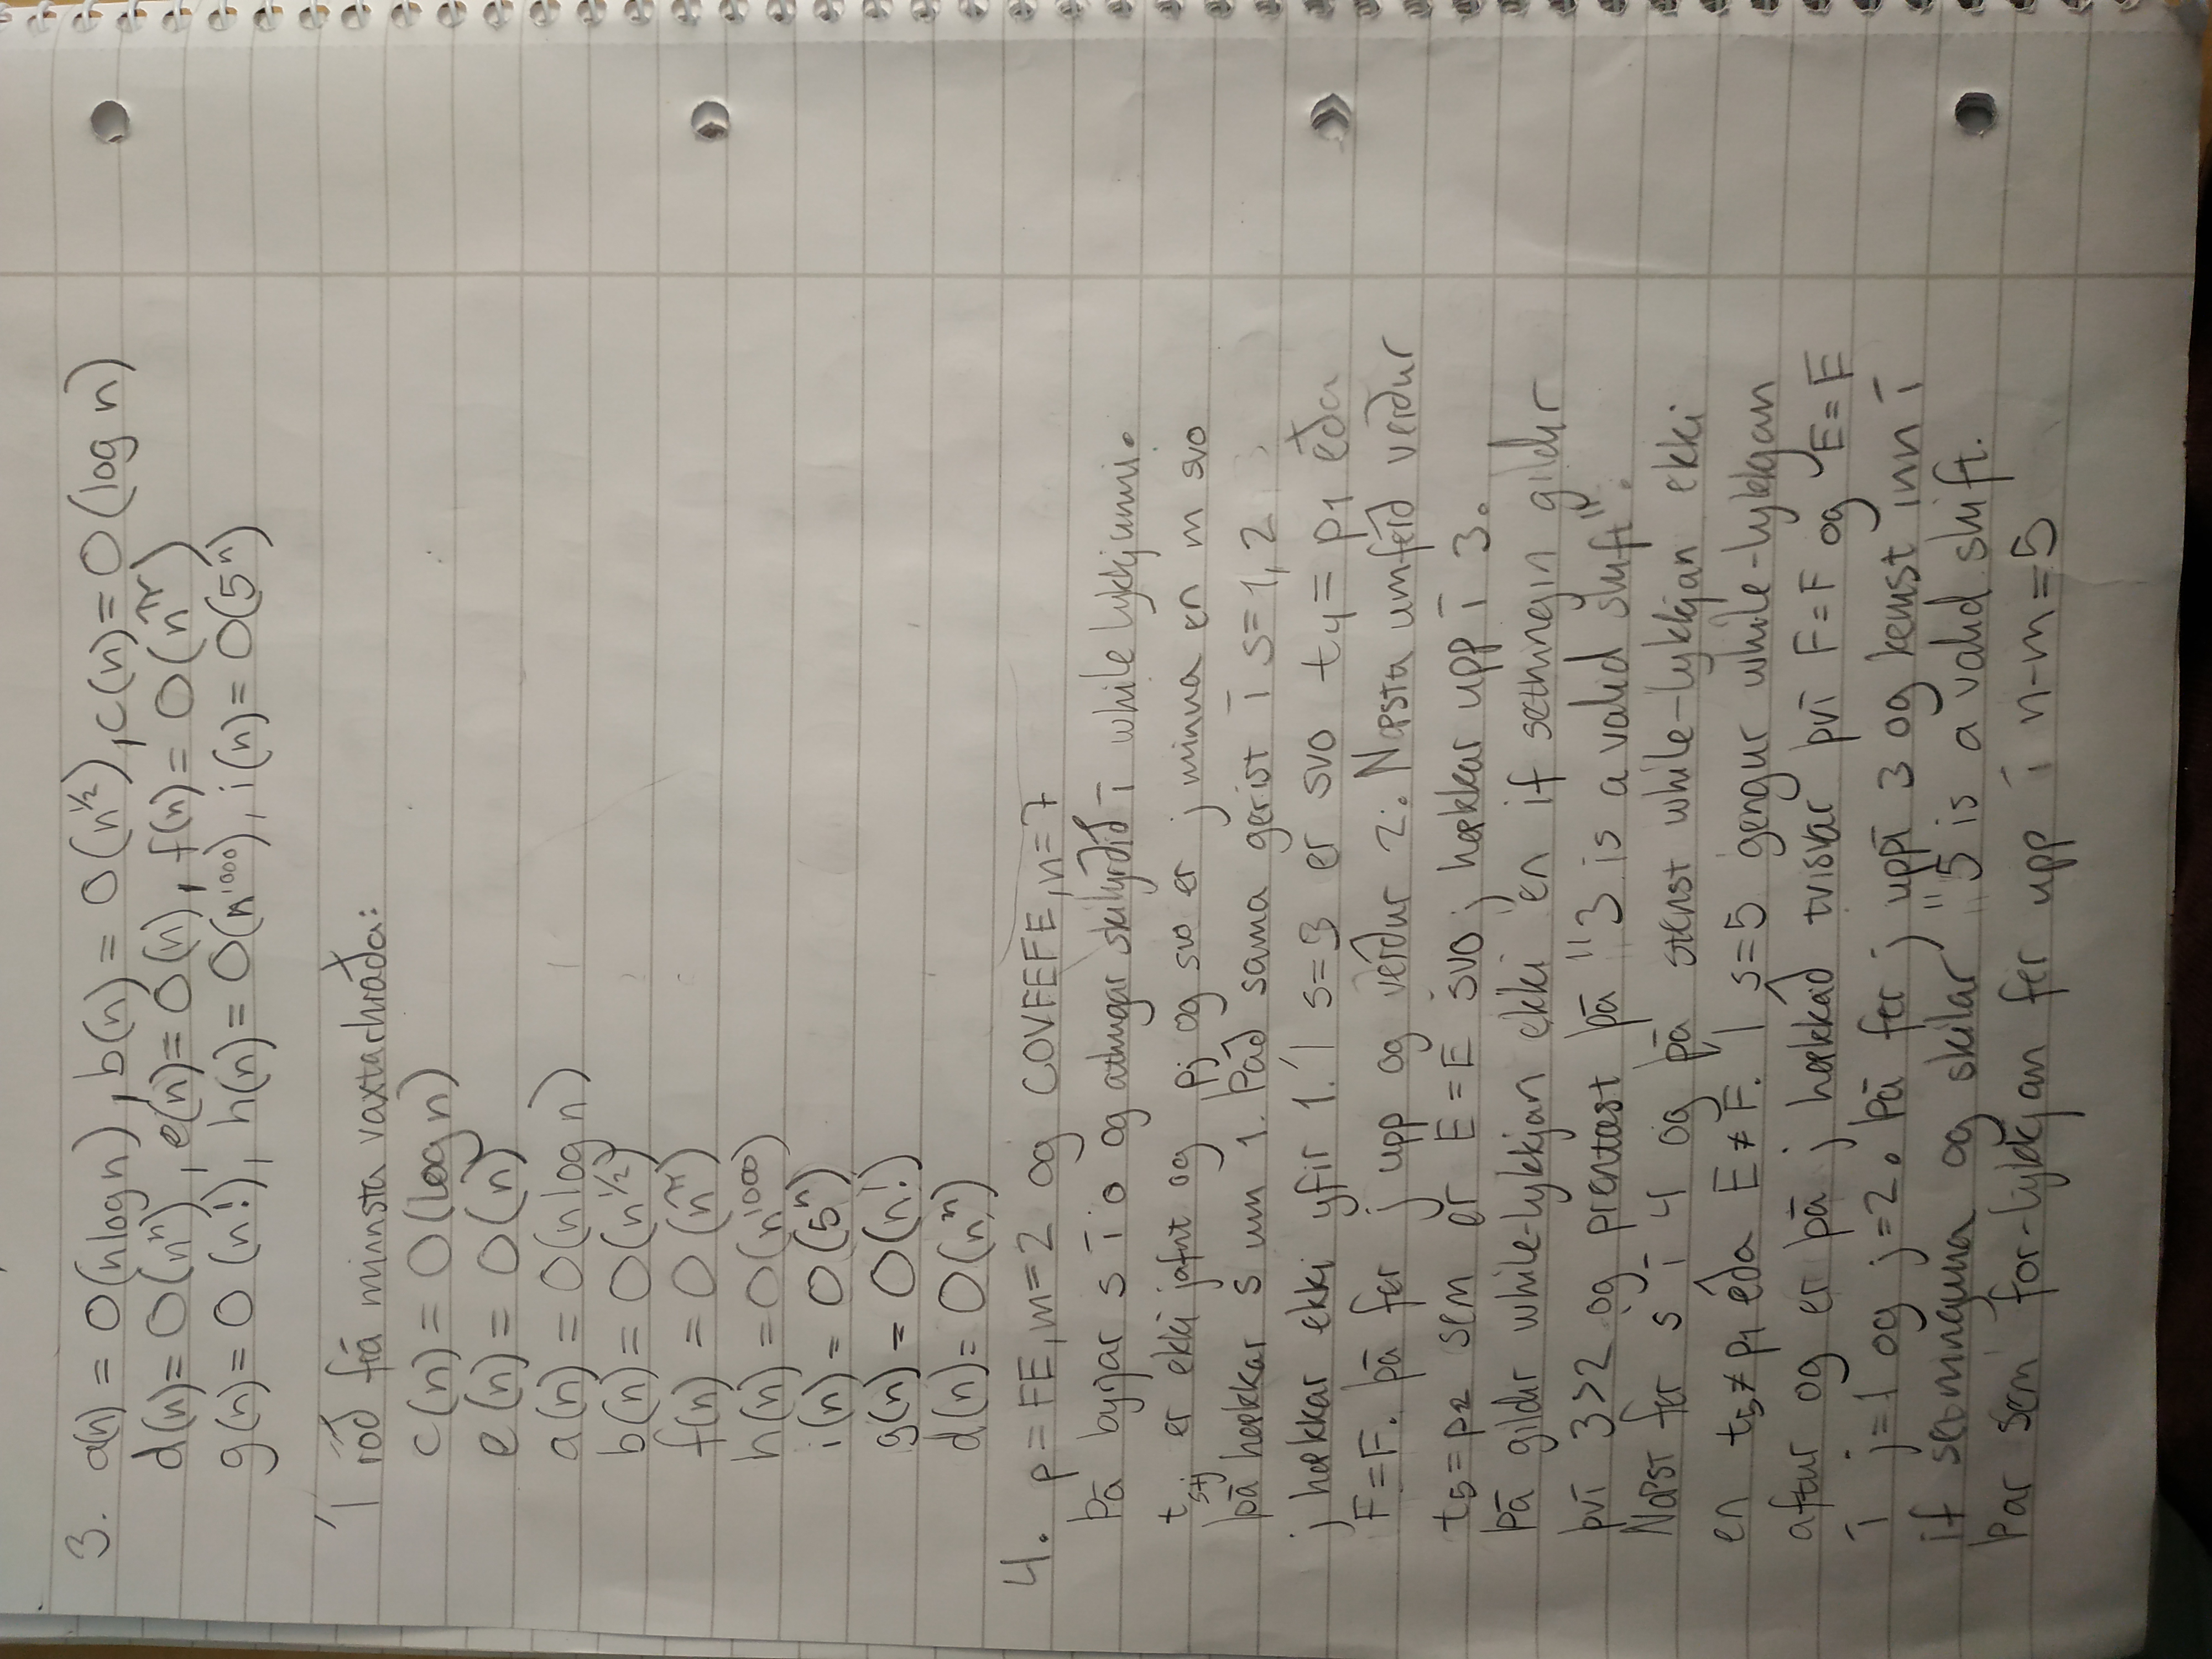 3. a(n) = O(nlogn), b(n) = O(n^½), c(n) = O(log n)
d(n) = O(nⁿ), e(n) = O(n), f(n) = O(n^π)
g(n) = O(n!), h(n) = O(n¹⁰⁰⁰), i(n) = O(5ⁿ)
Í röð frá minnsta vaxtarhraða:
c(n) = O(log n)
e(n) = O(n)
a(n) = O(nlogn)
b(n) = O(n^½)
f(n) = O(n^π)
h(n) = O(n¹⁰⁰⁰)
i(n) = O(5ⁿ)
g(n) = O(n!)
d(n) = O(nⁿ)
4. p = FE, m=2 og COVFEFE, n=7
Þá byrjar s í 0 og athugar skilyrðið í while lykkjunni.
t_s+j er ekki jafnt og pj og svo er j minna en m svo
þá hækkar s um 1. Það sama gerist í s=1,2
j hækkar ekki yfir 1. Í s=3 er svo t₄ = p₁ eða
F=F. Þá fer j upp og verður 2. Næsta umferð verður
t₅=p₂ sem er E=E svo j hækkar upp í 3.
Þá gildir while-lykkjan ekki en if setningin gildir
því 3>2 og prentast þá "3 is a valid shift".
Næst fer s í 4 og þá stenst while-lykkjan ekki
en t₅≠p₁ eða E≠F. Í s=5 gengur while-lykkjan
aftur og er þá j hækkað tvisvar því F=F og E=E
í j=1 og j=2. Þá fer j uppí 3 og kemst inn í
if setninguna og skilar "5 is a valid shift.
Þar sem for-lykkjan fer upp í n-m=5